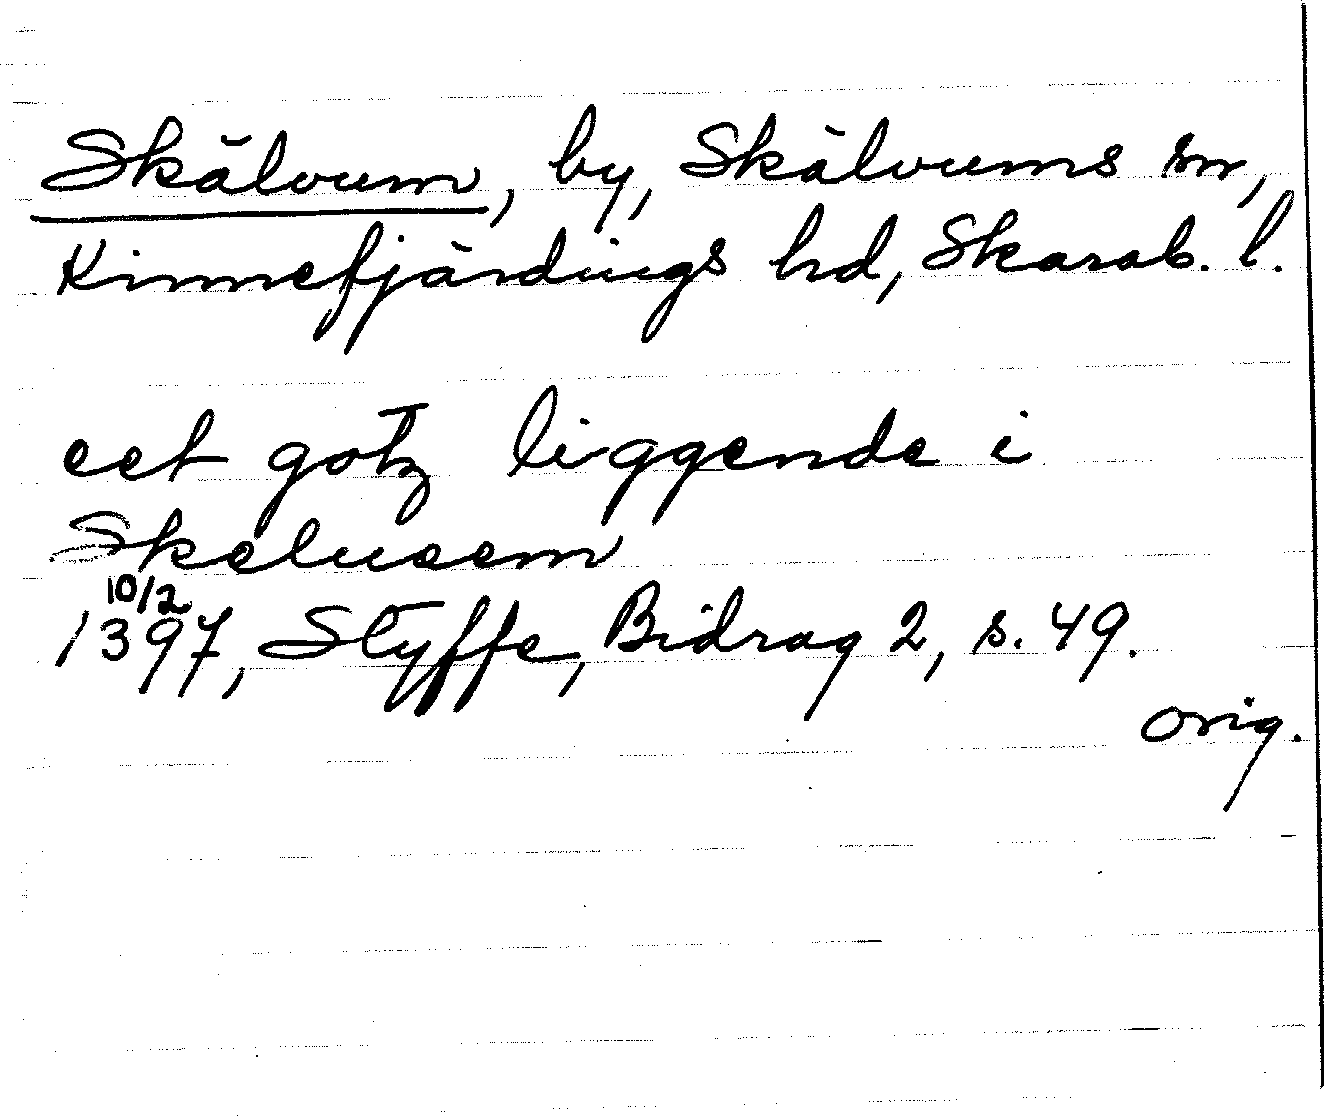 Skälvum, by, Skälvums sn,
Kinnefjärdings hd, Skarab. l.
eet gotz liggende i
Skelueem
10/2
1397, Styffe, Bidrag 2, s. 49.
orig.